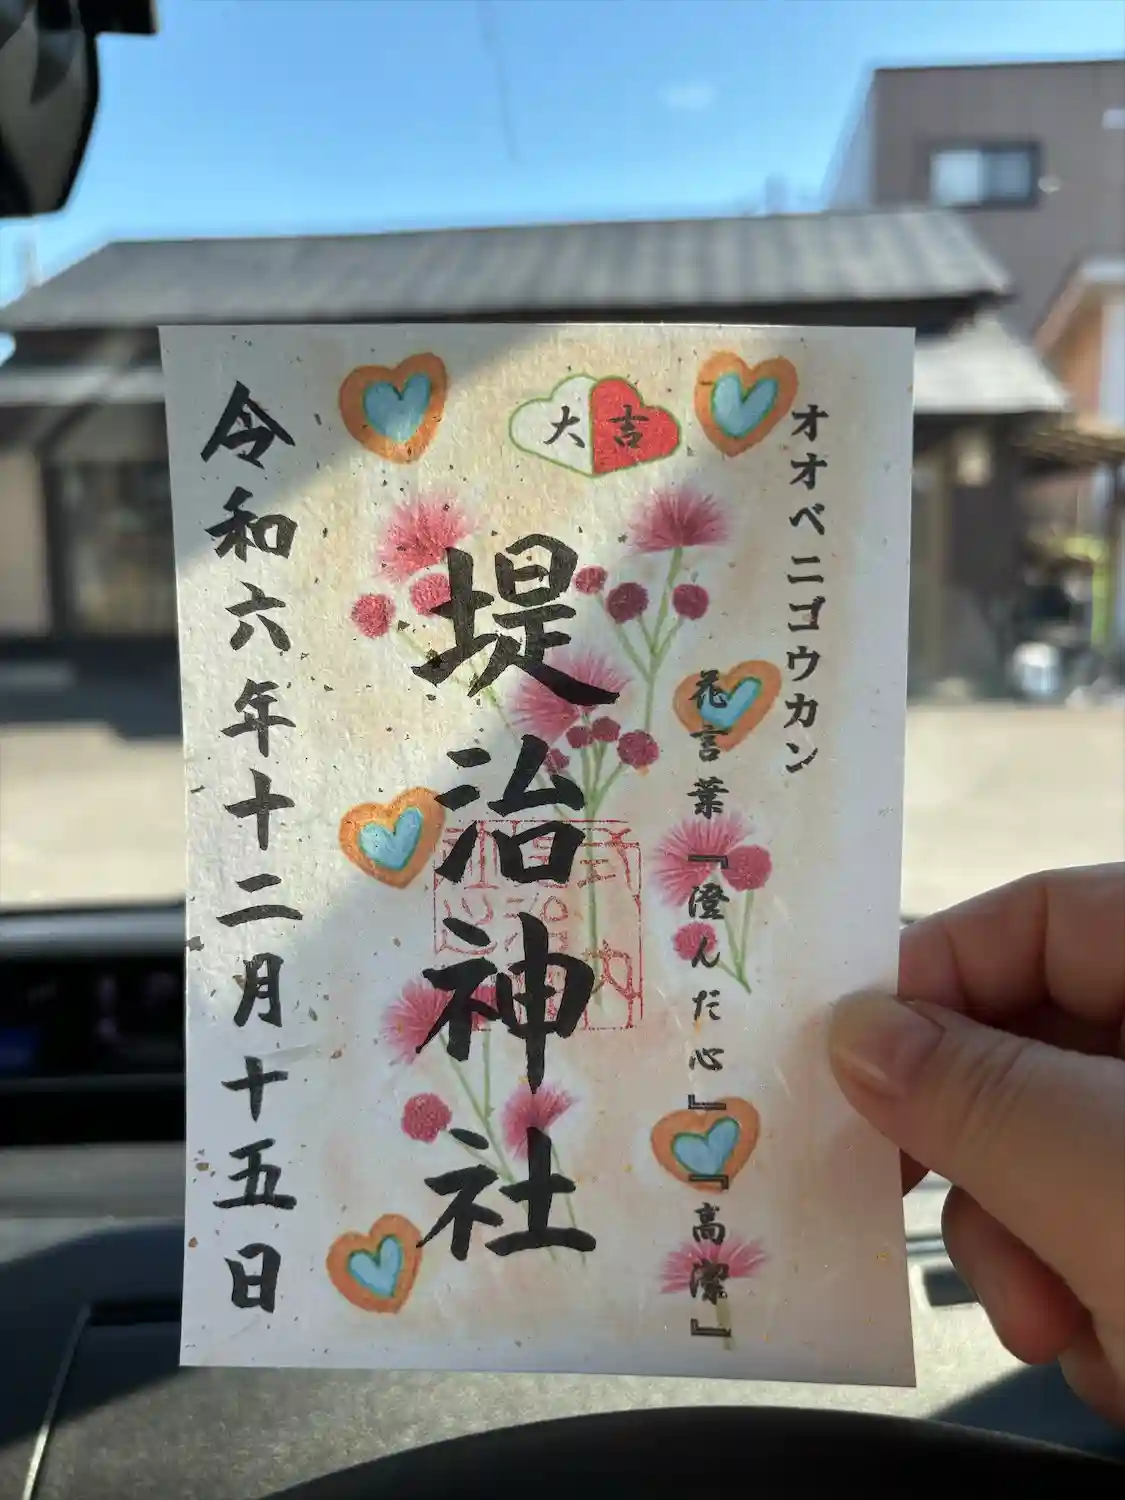 オオベニゴウカン
花言葉『澄んだ心』『高潔』
大吉
堤治神社
令和六年十二月十五日